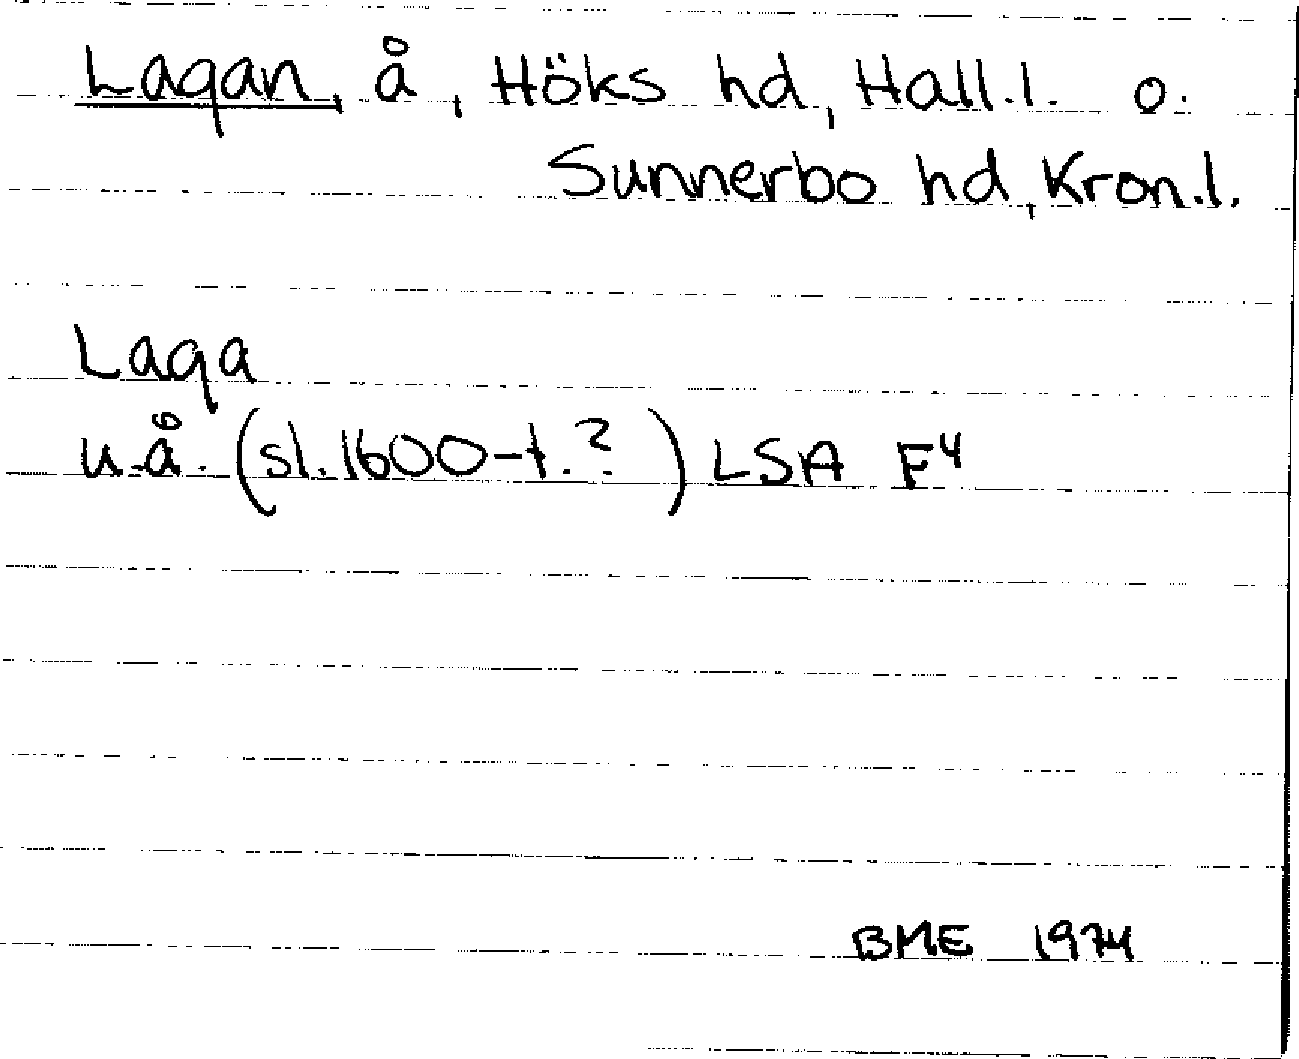 Lagan, å, Höks hd, Hall.l. o.
Sunnerbo hd, Kron.l.
Laga
u.å. (sl.1600-t.?) LSA F4
BME 1974